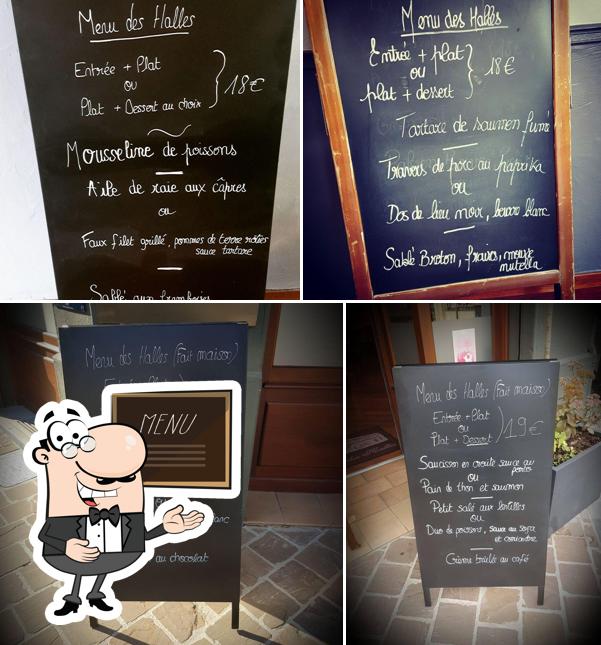 Menu des Halles
Entrée + Plat
ou
Plat + Dessert au choix
18€
Mousseline de poissons
Aile de raie aux câpres
ou
Faux filet grillé, pommes de terre rôties
sauce tartare
Sablé aux framboises
Menu des Halles
Entrée + plat
ou
plat + dessert
18€
Tartare de saumon fumé
Travers de porc au paprika
ou
Dos de lieu noir, beurre blanc
Sablé Breton, fraises, mousse
nutella
Menu des Halles (Fait maison)
MENU
au chocolat
Menu des Halles (Fait maison)
Entrée + Plat
ou
Plat + Dessert
19€
Saucisson en croute sauce au
porto
ou
Pain de thon et saumon
Petit salé aux lentilles
ou
Duo de poissons, sauce au soja
et coriandre
Crème brûlée au café